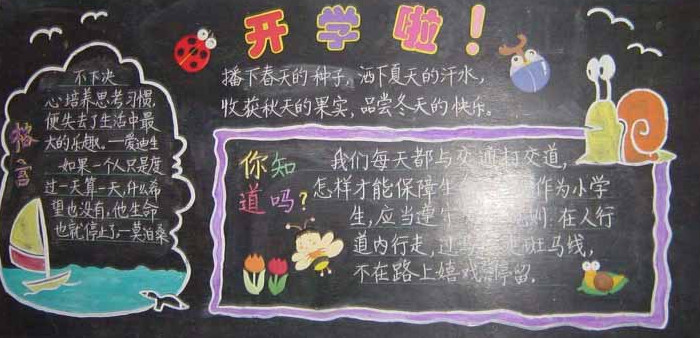 开学啦!
播下春天的种子,洒下夏天的汗水,
收获秋天的果实,品尝冬天的快乐。
格言
不下决
心培养思考习惯,
便失去了生活中最
大的乐趣。—爱迪生
如果一个人只是度
过一天算一天,什么希
望也没有,他生命
也就停止了—莫泊桑
你知
道吗?
我们每天都与交通打交道,
怎样才能保障生 作为小学
生,应当遵守 则:在人行
道内行走,过 斑马线,
不在路上嬉戏 停留。